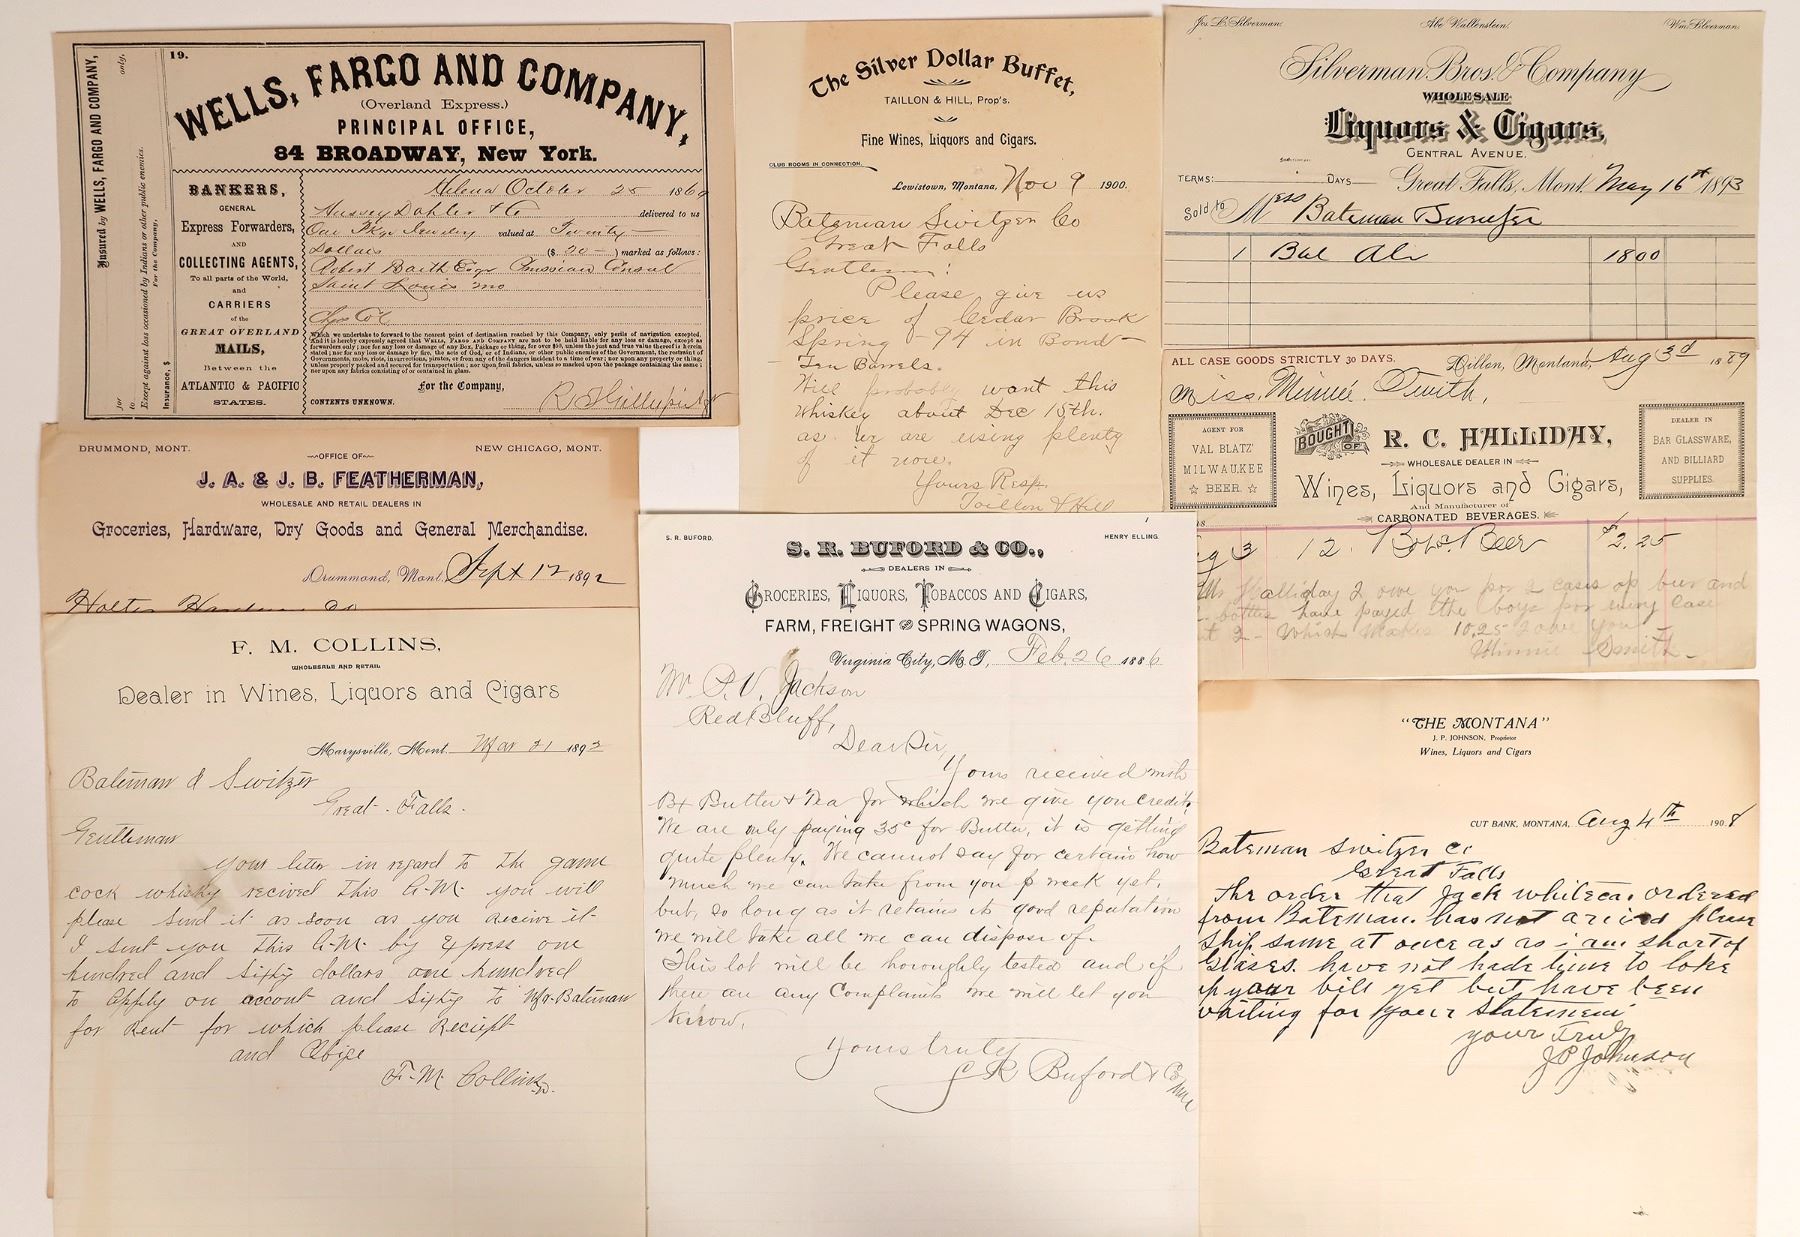 19.
Insured by WELLS, FARGO AND COMPANY,
only,
for
to
Except against loss occasioned by Indians or other public enemies.
For the Company.
Insurance, $
WELLS, FARGO AND COMPANY,
(Overland Express.)
PRINCIPAL OFFICE,
84 BROADWAY, New York.
BANKERS,
GENERAL
Express Forwarders,
AND
COLLECTING AGENTS,
To all parts of the World,
and
CARRIERS
of the
GREAT OVERLAND
MAILS,
Between the
ATLANTIC & PACIFIC
STATES.
Helena October 25 1869
delivered to us
One Pkge Jewelry valued at Twenty
Dollars ($ 20 ) marked as follows:
Consul
Saint Louis Mo
Which we undertake to forward to the nearest point of destination reached by this Company, only perils of navigation excepted.
For the Company,
CONTENTS UNKNOWN.
The Silver Dollar Buffet,
TAILLON & HILL, Prop's.
Fine Wines, Liquors and Cigars.
CLUB ROOMS IN CONNECTION.
Lewistown, Montana, Nov 9 1900.
Bateman Switzer Co
Great Falls
Gentlemen:
Please give us
price of Cedar Brook
Spring - 94 in Bond -
Ten Barrels.
Will probably want this
whiskey about Dec 15th.
as we are using plenty
of it now.
Yours Resp.
Taillon & Hill
Jos. L. Silverman. Abe Wallenstein. Wm. Silverman.
Silverman Bros. & Company
WHOLESALE
Liquors & Cigars,
CENTRAL AVENUE.
TERMS: DAYS Great Falls, Mont. May 16th 1893
Sold to Mess Bateman Sweutzer
1 Bbl Alc 1800
ALL CASE GOODS STRICTLY 30 DAYS. Dillon, Montana, Aug 3d 1889
Miss. Minnie Smith,
AGENT FOR
VAL BLATZ'
MILWAUKEE
☆ BEER. ☆
BOUGHT OF
R. C. HALLIDAY,
WHOLESALE DEALER IN
Wines, Liquors and Cigars,
And Manufacturer of
CARBONATED BEVERAGES.
DEALER IN
BAR GLASSWARE,
AND BILLIARD
SUPPLIES.
3 12 Bots. Beer $2.25
Mr Halliday I owe you for 2 cases of beer and
bottles have payed the boys for every case
2 - Which makes 10.25 I owe you
Minnie Smith -
DRUMMOND, MONT. NEW CHICAGO, MONT.
OFFICE OF
J. A. & J. B. FEATHERMAN,
WHOLESALE AND RETAIL DEALERS IN
Groceries, Hardware, Dry Goods and General Merchandise.
Drummond, Mont. Sept 12 1892
Holter Co
F. M. COLLINS,
WHOLESALE AND RETAIL
Dealer in Wines, Liquors and Cigars
Marysville, Mont. Mar 21 1892
Bateman & Switzer
Great Falls.
Gentleman
Your letter in regard to the game
cock whisky recived this A.M. you will
please send it as soon as you receive it
I sent you this A.M. by Express one
hundred and sixty dollars one hundred
to apply on account and sixty to Mr. Bateman
for Rent for which please Reciept
and Oblige
F. M. Collins
S. R. BUFORD. HENRY ELLING.
S. R. BUFORD & CO.,
DEALERS IN
GROCERIES, LIQUORS, TOBACCOS AND CIGARS,
FARM, FREIGHT AND SPRING WAGONS,
Virginia City, M. T., Feb. 26 1886
Mr. P. V. Jackson
Red Bluff,
Dear Sir,
Yours received with
Bx Butter & Tea for which we give you credit.
We are only paying 35c for Butter, it is getting
quite plenty. We cannot say for certain how
much we can take from you p week yet,
but, so long as it retains its good reputation
we will take all we can dispose of.
This lot will be thoroughly tested and if
there are any Complaints we will let you
know.
Yours truly
S R Buford & Co
"THE MONTANA"
J. P. JOHNSON, Proprietor
Wines, Liquors and Cigars
CUT BANK, MONTANA, Aug 4th 1908
Bateman Switzer Co
Great Falls
The order that Jack ordered
from Bateman. has not arived please
ship same at once as as i am short of
Glases. have not hade time to loke
up your bill yet but have been
waiting for your statement
your Truly
JP Johnson